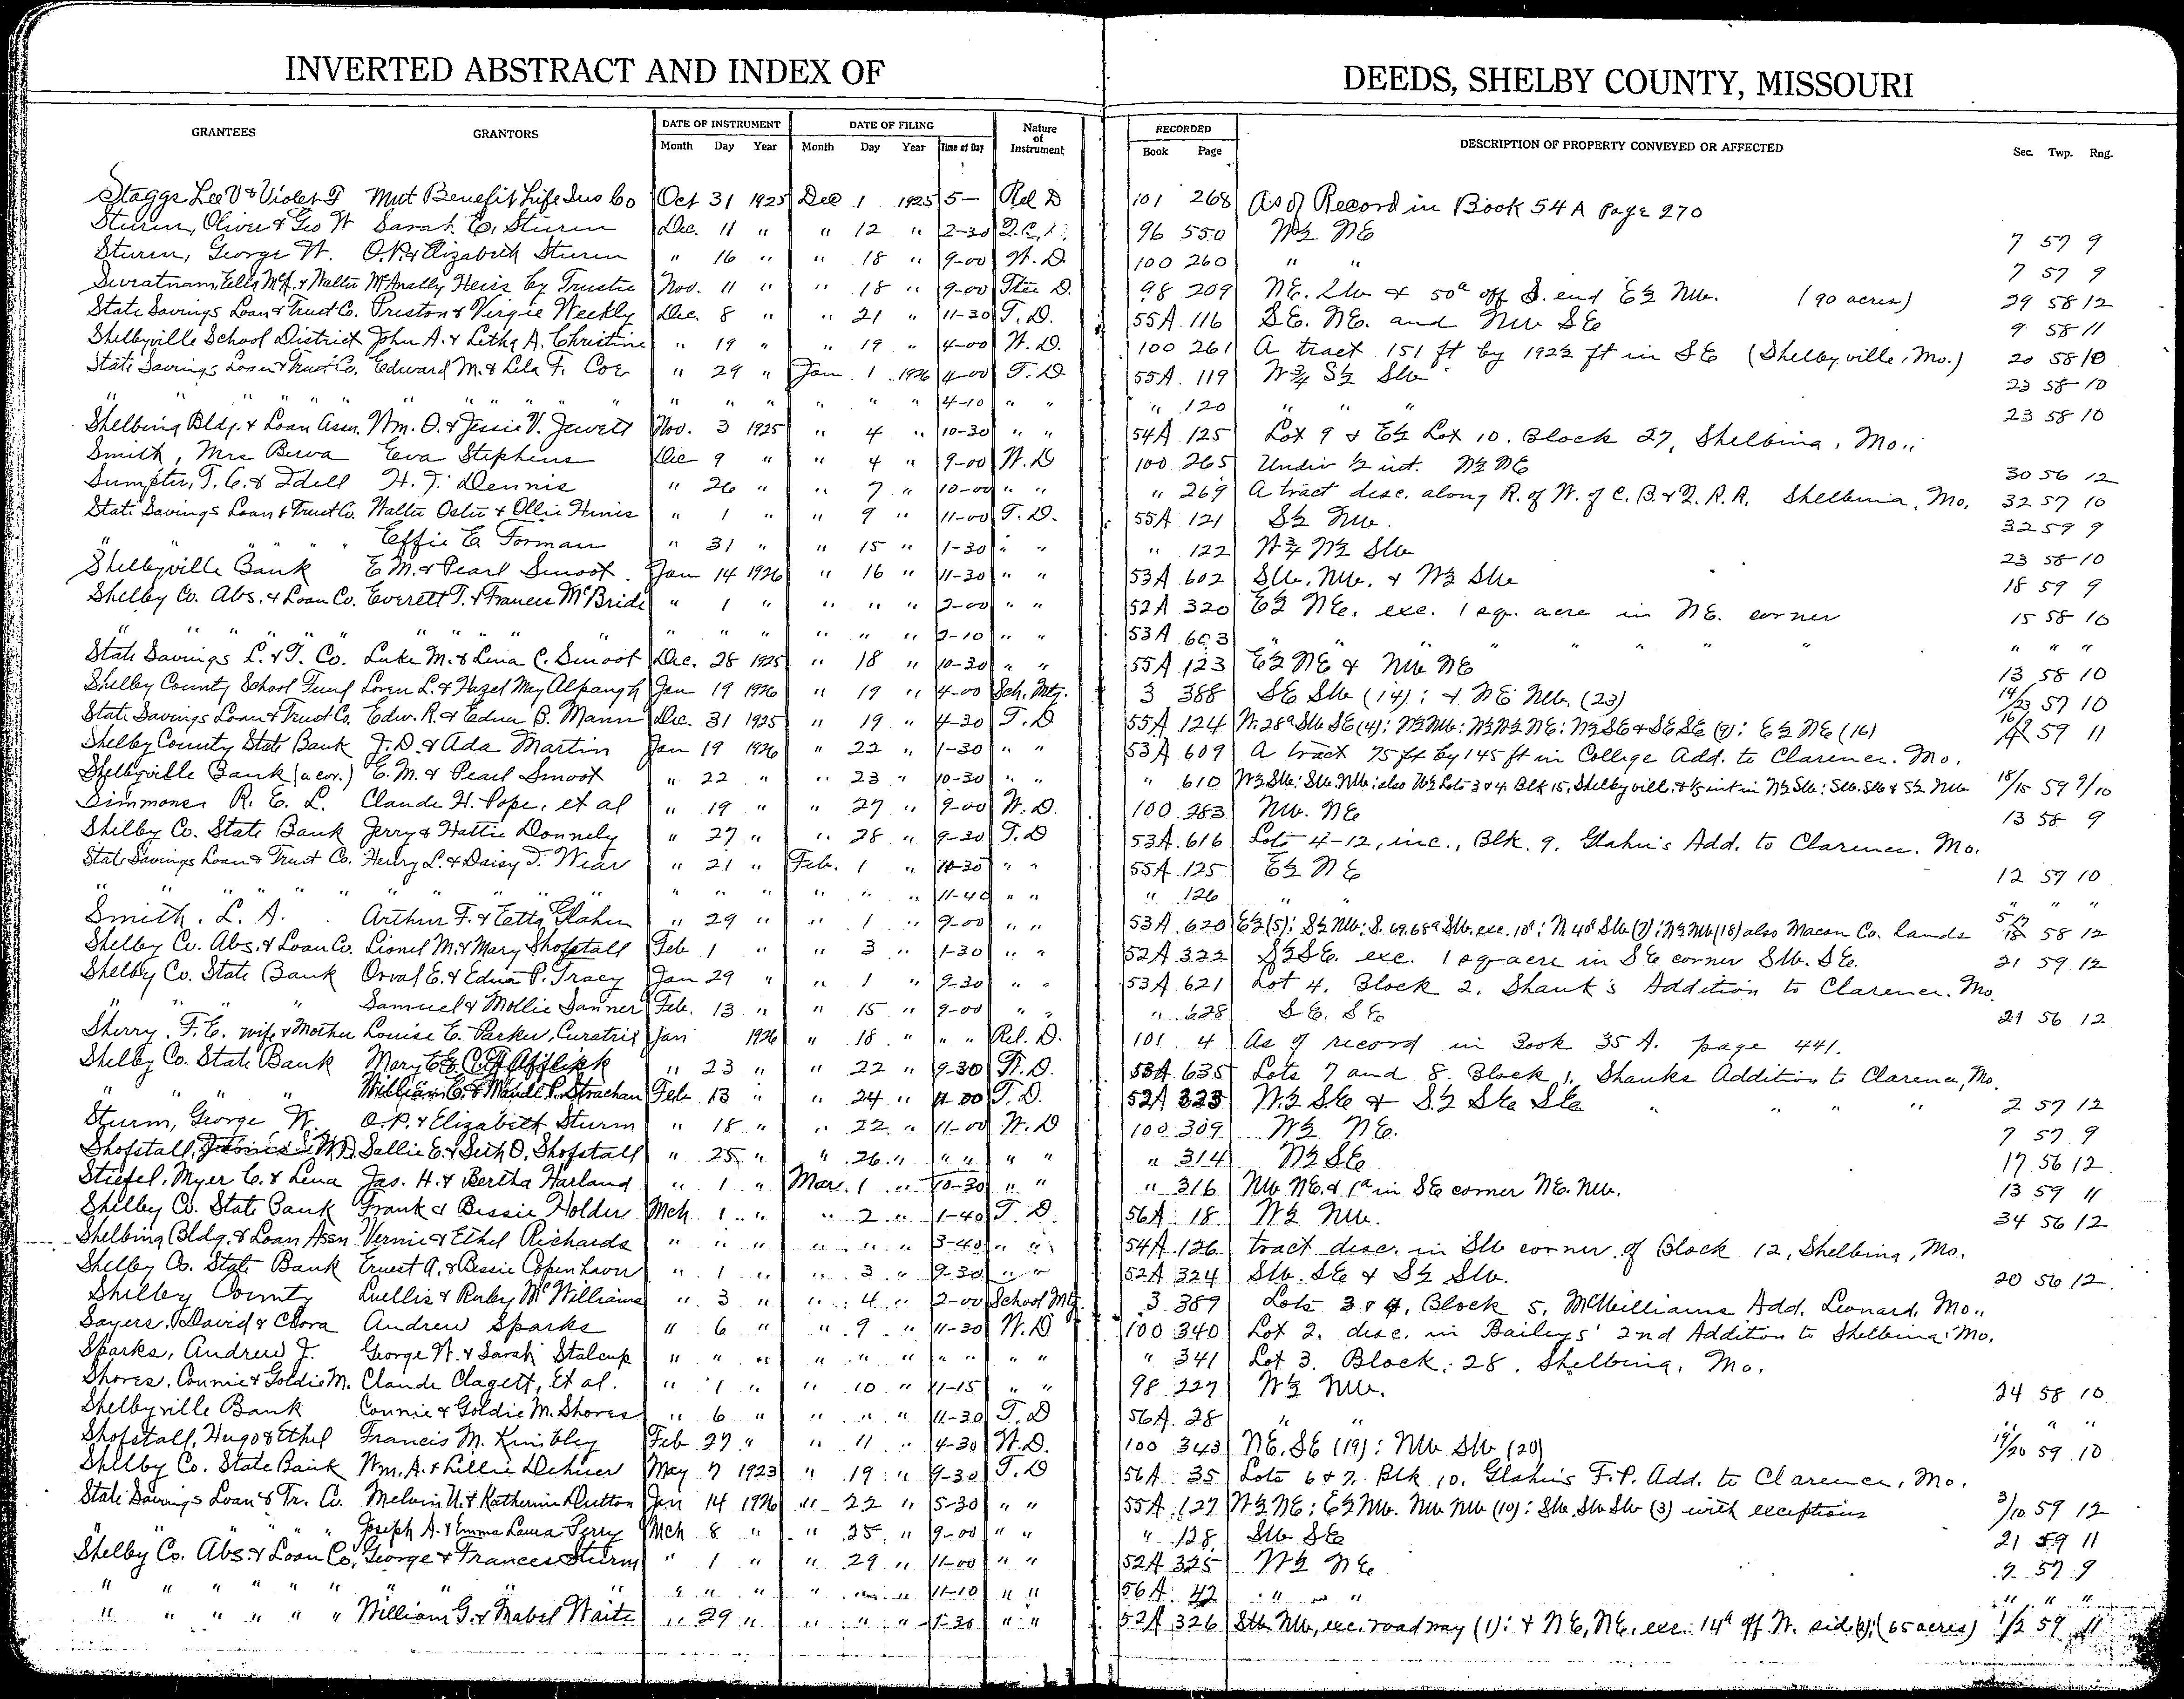 INVERTED ABSTRACT AND INDEX OF
DEEDS, SHELBY COUNTY, MISSOURI
GRANTEES GRANTORS DATE OF INSTRUMENT Month Day Year DATE OF FILING Month Day Year Time of Day Nature of Instrument RECORDED Book Page DESCRIPTION OF PROPERTY CONVEYED OR AFFECTED Sec. Twp. Rng.
Staggs Lee V & Violet F Mut Benefit Life Ins Co Oct 31 1925 Dec 1 1925 5— Rel D 101 268 As of Record in Book 54 A Page 270
Sturm, Oliver & Geo W Sarah E. Sturm Dec. 11 " " 12 " 2-30 Q.C. 96 550 W½ NE 7 57 9
Sturm, George W. O.P. & Elizabeth Sturm " 16 " " 18 " 9-00 W.D. 100 260 " " 7 57 9
Swratnam, Ella McA. & Walter McAnally Heirs by Trustee Nov. 11 " " 18 " 9-00 Ttee D. 98 209 NE. SW & 50a off S. end E½ NW. (90 acres) 29 58 12
State Savings Loan & Trust Co. Preston & Virgie Weekly Dec. 8 " " 21 " 11-30 T.D. 55A 116 SE. NE. and NW SE 9 58 11
Shelbyville School District John A. & Letha A. Christine " 19 " " 19 " 4-00 W.D. 100 261 A tract 151 ft by 192½ ft in SE (Shelbyville, Mo.) 20 58 10
State Savings Loan & Trust Co. Edward M. & Lela F. Coe " 29 " Jan. 1 1926 4-00 T.D 55A 119 W¾ S½ SW 23 58 10
" " " " " " " " " " " " " " " 4-10 " " " 120 " " " 23 58 10
Shelbina Bldg. & Loan Assn. Wm. O. & Jessie V. Jewett Nov. 3 1925 " 4 " 10-30 " " 54A 125 Lot 9 & E½ Lot 10. Block 27, Shelbina, Mo.
Smith, Mrs Berva Eva Stephens Dec 9 " " 4 " 9-00 W.D 100 265 Undiv ½ int. W½ NE 30 56 12
Sumpter, T. C. & Idell H. T. Dennis " 26 " " 7 " 10-00 " " " 269 A tract desc. along R. of W. of C. B & Q. R. R. Shelbina, Mo. 32 57 10
State Savings Loan & Trust Co. Walter Oster & Ollie Hinis " 1 " " 9 " 11-00 T.D. 55A 121 S½ NW. 32 59 9
" " " " Effie E. Forman " 31 " " 15 " 1-30 " " " 122 W¾ N½ SW 23 58 10
Shelbyville Bank E M. & Pearl Smoot Jan 14 1926 " 16 " 11-30 " " 53A 602 SW. NW. & W½ SW 18 59 9
Shelby Co. Abs. & Loan Co. Everett T. & Frances McBride " 1 " " " " 2-00 " " 52A 320 E½ NE. exc. 1 sq. acre in NE. corner 15 58 10
" " " " " " " " " " " " " " " 2-10 " " 53A 603 " " " " " " " " "
State Savings L. & T. Co. Luke M. & Lina C. Smoot Dec. 28 1925 " 18 " 10-30 " " 55A 123 E½ NE & NW NE 13 58 10
Shelby County School Fund Loren L. & Hazel May Alspaugh Jan 19 1926 " 19 " 4-00 Sch. Mtg. 3 388 SE SW (14): & NE NW. (23) 14/23 57 10
State Savings Loan & Trust Co. Edw. R. & Edna B. Mann Dec. 31 1925 " 19 " 4-30 T.D 55A 124 W. 28a SW SE (4): W½ NW: W½ W½ NE: W½ SE & SE SE (9): E½ NE (16) 59 11
Shelby County State Bank J. D. & Ada Martin Jan 19 1926 " 22 " 1-30 " " 53A 609 A tract 75 ft by 145 ft in College Add. to Clarence. Mo.
Shelbyville Bank (a cor.) E. M. & Pearl Smoot " 22 " " 23 " 10-30 " " " 610 W½ SW: SW. NW: also W½ Lots 3 & 4. Blk 15, Shelbyville, & ⅓ int in N½ SW: SW. SW & S½ NW 18/15 59 9/10
Simmons R. E. L. Claude H. Pope, et al " 19 " " 27 " 9-00 W.D. 100 283 NW. NE 13 58 9
Shelby Co. State Bank Jerry & Hattie Donnely " 27 " " 28 " 9-30 T.D 53A 616 Lots 4-12, inc., Blk. 9. Glahn's Add. to Clarence. Mo.
State Savings Loan & Trust Co. Henry L. & Daisy T. Wear " 21 " Feb. 1 " 10-30 " " 55A 125 E½ NE 12 59 10
" " " " " " " " " " " " " 11-40 " " " 126 " " " " "
Smith. L. A. Arthur F. & Etta Glahn " 29 " " 1 " 9-00 " " 53A 620 E½ (5): S½ NW: S. 69.68a SW. exc. 10a: N 40a SW (7): N½ NW (18) also Macon Co. lands 5/7/18 58 12
Shelby Co. Abs. & Loan Co. Lionel M. & Mary Shofstall Feb 1 " " 3 " 1-30 " " 52A 322 S½ SE. exc. 1 sq acre in SE corner SW. SE. 21 59 12
Shelby Co. State Bank Orval E. & Edna P. Tracy Jan 29 " " 1 " 9-30 " " 53A 621 Lot 4. Block 2. Shank's Addition to Clarence. Mo.
" " " " Samuel & Mollie Sanner Feb. 13 " " 15 " 9-00 " " " 628 SE. SE 21 56 12
Sherry. F. E. wife & Mother Louise E. Parker, Curatrix Jan 1926 " 18 " " " Rel. D. 101 4 As of record in Book 35 A. page 441.
Shelby Co. State Bank Mary E & C. H Afflick " 23 " " 22 " 9-30 W.D. 53A 635 Lots 7 and 8. Block 1, Shanks Addition to Clarence, Mo.
" " " " William C. & Maude P. Strachan Feb 13 " " 24 " 11 00 T.D. 52A 323 N½ SE & S½ SE SE " " " 2 57 12
Sturm, George W. O. P. & Elizabeth Sturm " 18 " " 22 " 11-00 W.D 100 309 W½ NE. 7 57 9
Shofstall, W D. Sallie E. & Seth O. Shofstall " 25 " " 26 " " " " " " 314 N½ SE 17 56 12
Stiefel, Myer C. & Lena Jas. H. & Bertha Harland " 1 " Mar. 1 " 10-30 " " " 316 NW. NE. & 1a in SE corner NE. NW. 13 59 11
Shelby Co. State Bank Frank & Bessie Holder Mch 1 " " 2 " 1-40 T.D. 56A 18 W½ NW. 34 56 12
Shelbina Bldg. & Loan Assn Vernie & Ethel Richards " " " " " " 3-40 " " 54A 126 tract desc. in SW corner of Block 12, Shelbina, Mo.
Shelby Co. State Bank Ernest A. & Bessie Copenhaver " 1 " " 3 " 9-30 " " 52A 324 SW. SE & S½ SW. 20 56 12
Shelby County Luellis & Ruby McWilliams " 3 " " 4 " 2-00 School Mtg. 3 389 Lots 3 & 4, Block 5, McWilliams Add. Leonard, Mo.
Sayers, David & Clora Andrew Sparks " 6 " " 9 " 11-30 W.D 100 340 Lot 2. desc. in Baileys' 2nd Addition to Shelbina, Mo.
Sparks, Andrew J. George W. & Sarah Stalcup " " " " " " " " " " 341 Lot 3. Block 28. Shelbina, Mo.
Shores, Connie & Goldie M. Claude Clagett, Et al. " 1 " " 10 " 11-15 " " 98 227 W½ NW. 24 58 10
Shelbyville Bank Connie & Goldie M. Shores " 6 " " " " 11-30 T.D 56A 28 " " " " "
Shofstall, Hugo & Ethel Francis M. Kimbley Feb 27 " " 11 " 4-30 W.D. 100 343 NE. SE (19): NW SW (20) 19/20 59 10
Shelby Co. State Bank Wm. A. & Lillie Dehner May 7 1923 " 19 " 9-30 T.D 56A 35 Lots 6 & 7. Blk 10. Glahn's F.P. Add. to Clarence, Mo.
State Savings Loan & Tr. Co. Melvin U. & Katherine Dutton Jan 14 1926 " 22 " 5-30 " " 55A 127 W½ NE: E½ NW. NW NW (10): SW. SW SW (3) with exceptions 3/10 59 12
" " " Joseph A. & Emma Laura Perry Mch 8 " " 25 " 9-00 " " " 128 SW SE 21 59 11
Shelby Co. Abs. & Loan Co. George & Frances Sturm " 1 " " 29 " 11-00 " " 52A 325 W½ NE 7 57 9
" " " " " " " " " " " " " 11-10 " " 56A 42 " " " " " "
" " " " " " William G. & Mabel Waite " 29 " " " " 1-30 " " 52A 326 SW. NW, exc. roadway (1): & NE, NE. exc. 14a off N. side (2): (65 acres) 1/2 59 11